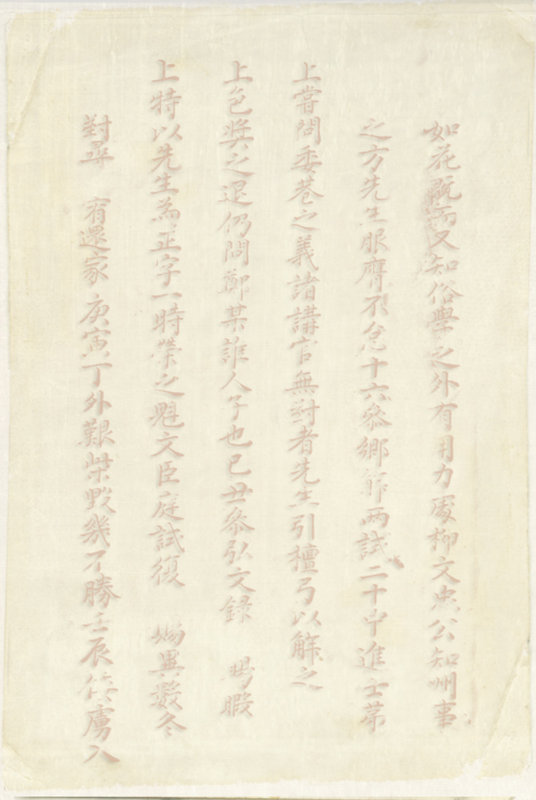 如花 而又知俗學之外有用力處柳文忠公知州事
之方先生服膺不怠十六參鄉解兩試二十中進士第
上嘗問委巷之義諸講官無對者先生引檀弓以解之
上色奬之退仍問鄭某誰人子也己丑參弘文錄 賜暇
上特以先生為正字一時榮之魁文臣庭試復 賜異數冬
對平 宿還家庚寅丁外艱柴毀幾不勝壬辰倭虜入